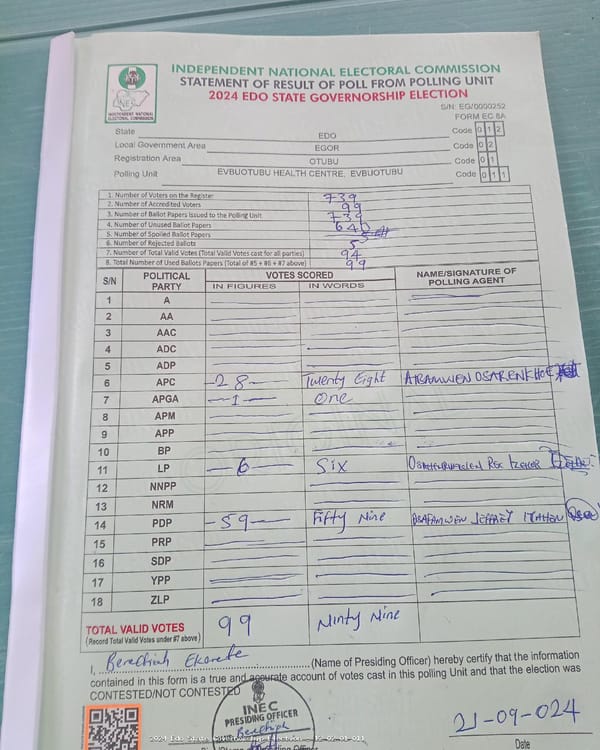 INDEPENDENT NATIONAL ELECTORAL COMMISSION
STATEMENT OF RESULT OF POLL FROM POLLING UNIT
2024 EDO STATE GOVERNORSHIP ELECTION
INDEPENDENT NATIONAL ELECTORAL COMMISSION
S/N: EG/0000252
FORM EC 8A
State EDO Code 0 1 2
Local Government Area EGOR Code 0 2
Registration Area OTUBU Code 0 1
Polling Unit EVBUOTUBU HEALTH CENTRE, EVBUOTUBU Code 0 1 1
1. Number of Voters on the Register 739
2. Number of Accredited Voters 99
3. Number of Ballot Papers Issued to the Polling Unit 739
4. Number of Unused Ballot Papers 640
5. Number of Spoiled Ballot Papers
6. Number of Rejected Ballots 5
7. Number of Total Valid Votes (Total Valid Votes cast for all parties) 94
8. Total Number of Used Ballots Papers (Total of #5 + #6 + #7 above) 99
S/N POLITICAL PARTY VOTES SCORED NAME/SIGNATURE OF POLLING AGENT
IN FIGURES IN WORDS
1 A
2 AA
3 AAC
4 ADC
5 ADP
6 APC -28- Twenty Eight
7 APGA -1- One
8 APM
9 APP
10 BP
11 LP -6- Six
12 NNPP
13 NRM
14 PDP -59- Fifty Nine JEFFREY
15 PRP
16 SDP
17 YPP
18 ZLP
TOTAL VALID VOTES 99 Ninty Nine
(Record Total Valid Votes under #7 above)
I, Berechiah Ekarete (Name of Presiding Officer) hereby certify that the information
contained in this form is a true and accurate account of votes cast in this polling Unit and that the election was
CONTESTED/NOT CONTESTED
INEC
PRESIDING OFFICER
21-09-024
Date